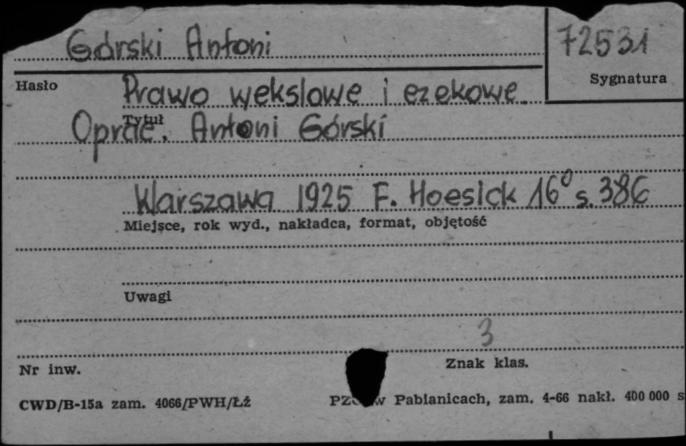 Górski Antoni
72531
Hasło
Sygnatura
Prawo wekslowe i czekowe.
Tytuł
Oprac. Antoni Górski
Warszawa 1925 F. Hoesick 16° s. 386
Miejsce, rok wyd., nakładca, format, objętość
Uwagi
3
Nr inw.
Znak klas.
CWD/B-15a zam. 4066/PWH/Łź
w Pabianicach, zam. 4-66 nakł. 400 000 s